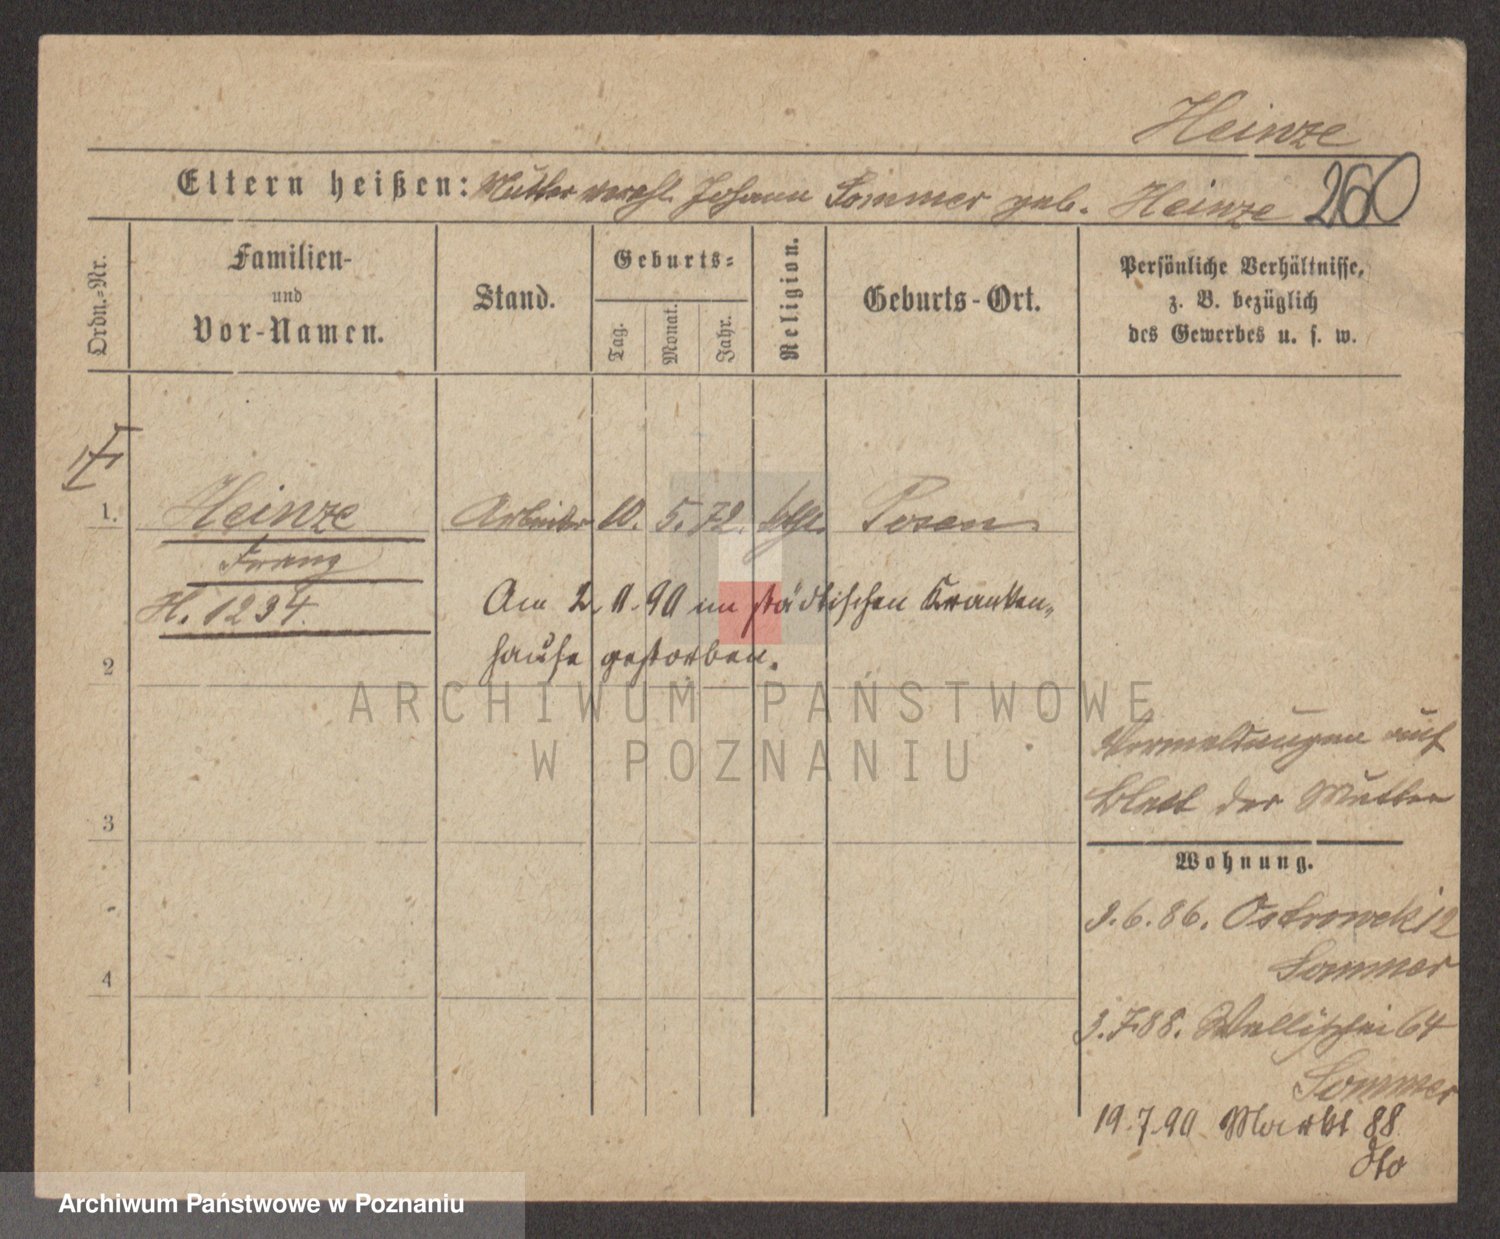 Heinze
Eltern heißen: Mutter verehl. Johann Sommer geb. Heinze 260
Ordn.-Nr.
Familien-
und
Vor-Namen.
Stand.
Geburts-
Tag.
Monat.
Jahr.
Religion.
Geburts-Ort.
Persönliche Verhältnisse,
z. B. bezüglich
des Gewerbes u. s. w.
1. Heinze Arbeiter 10. 5. 72. kth. Posen
Franz
H. 1234.
Am 2. 11. 90 im städtischen Kranken-
hause gestorben.
2
3
4
Vermeldungen auf
Blatt der Mutter
Wohnung.
3.6.86. Ostrowek 12
Sommer
3.7.88. Wallischei 64
Sommer
19.7.90 Markt 88
dto
ARCHIWUM PAŃSTWOWE
W POZNANIU
Archiwum Państwowe w Poznaniu